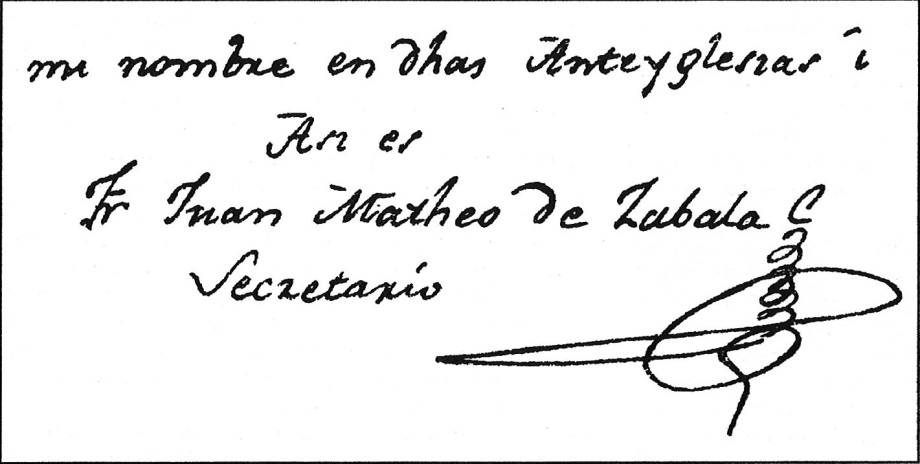 mi nombre en dhas Anteyglesias i
Asi es
Fr Juan Matheo de Zabala
Secretario